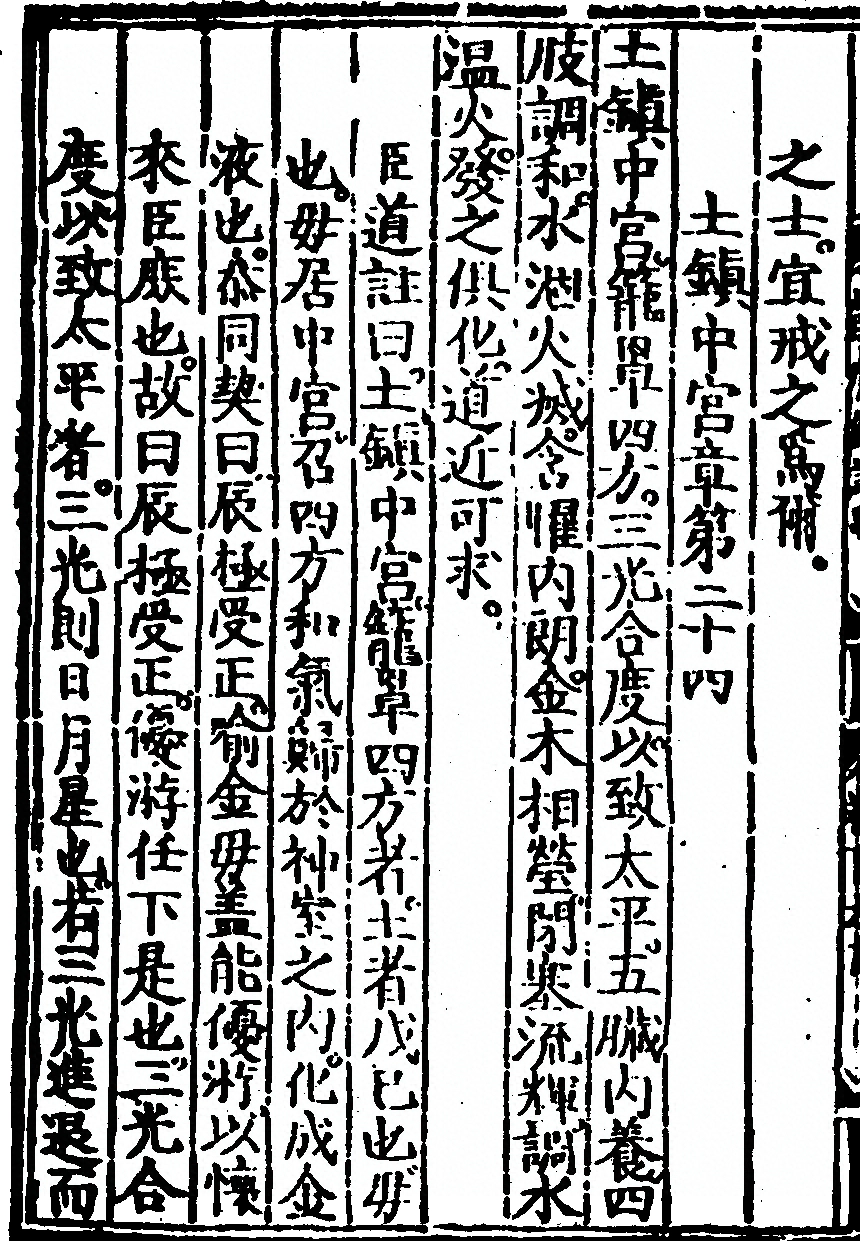 之士宜戒之爲爾
土鎮中宮章第二十四
土鎮中宮籠罩四方三光合度以致太平五臟内養四
肢調和水涸火滅含懼内朗金木相瑩閉塞流輝調水
溫火發之俱化道近可求
臣道註曰土鎮中宮籠罩四方者土者戊己也毋
也毋居中宮召四方和氣歸於神室之内化成金
液也叅同契曰辰極受正喻金毋盖能優游以懷
來臣庶也故曰辰極受正優游任下是也三光合
度以致太平者三光則日月星也若三光進退而